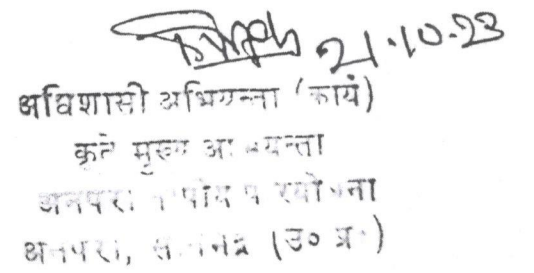 21.10.23
अधिशासी अभियन्ता (कार्य)
कृते मुख्य अभियन्ता
अनपरा तापीय परियोजना
अनपरा, सोनभद्र (उ० प्र०)